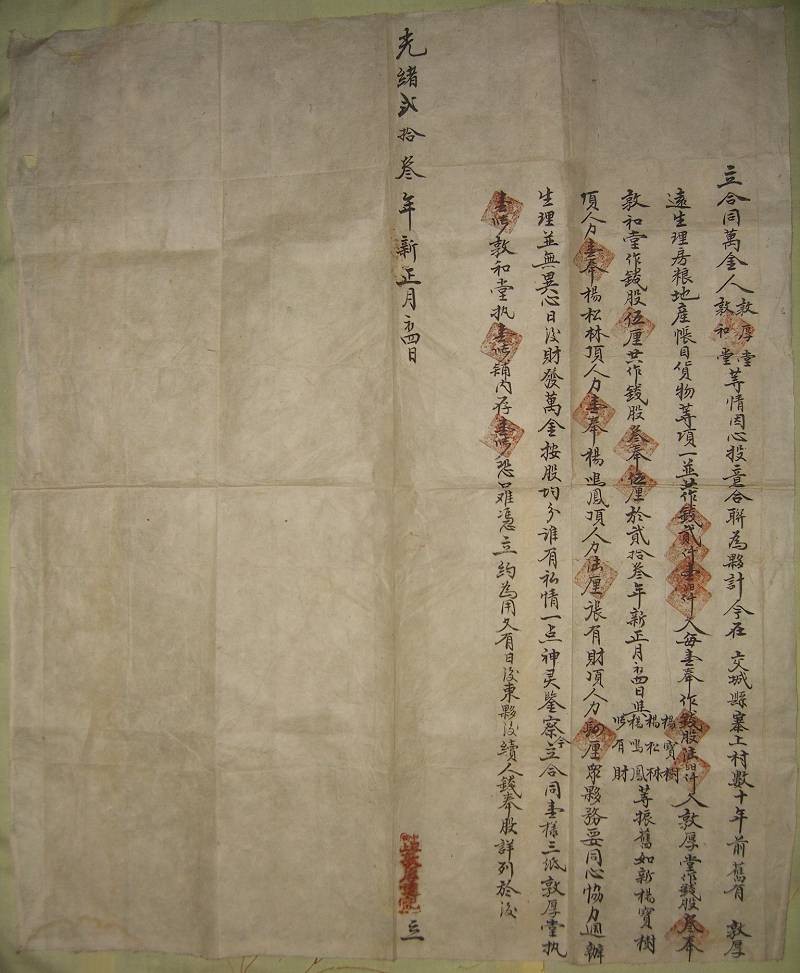 立合同萬金人敦厚堂敦和堂等情因心投意合聯為夥計今在交城縣寨上村數十年前舊有敦厚
遠生理房粮地產帳目貨物等項一並共作錢貳仟壹佰仟文每壹奉作錢股陸佰仟文敦厚堂作錢股叄奉
敦和堂作錢股伍厘共作錢股叄奉伍厘於貳拾叄年新正月初四日與楊寶樹楊松林楊鳴鳳張有財等振舊如新楊寶樹
頂人力壹奉楊松林頂人力壹奉楊鳴鳳頂人力陸厘張有財頂人力厘眾夥務要同心協力通辦
生理並無異心日後財發萬金按股均分誰有私情一点神灵鑒察今立合同壹樣三紙敦厚堂执
壹帋敦和堂执壹帋鋪內存壹帋恐口难憑立約為用又有日後東夥後續人錢奉股詳列於後
光緒貳拾叄年新正月初四日 立